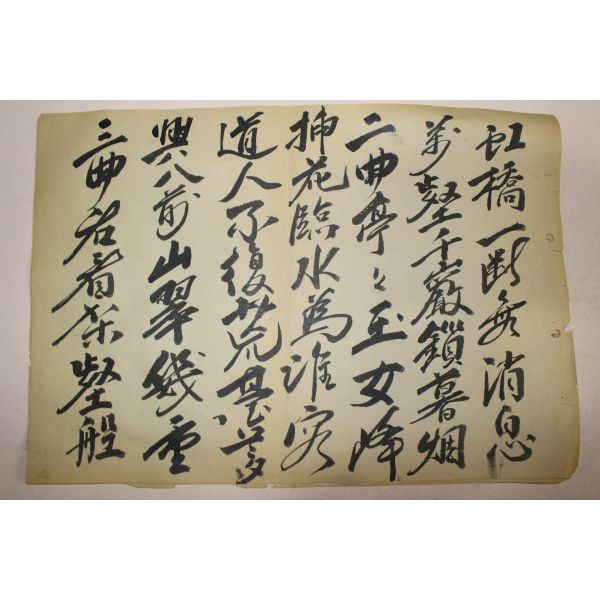 虹橋一斷無消息
萬壑千巖鎖暮烟
二曲亭々玉女峰
揷花臨水為誰容
道人不復荒臺夢
興入前山翠幾重
三曲君看架壑船